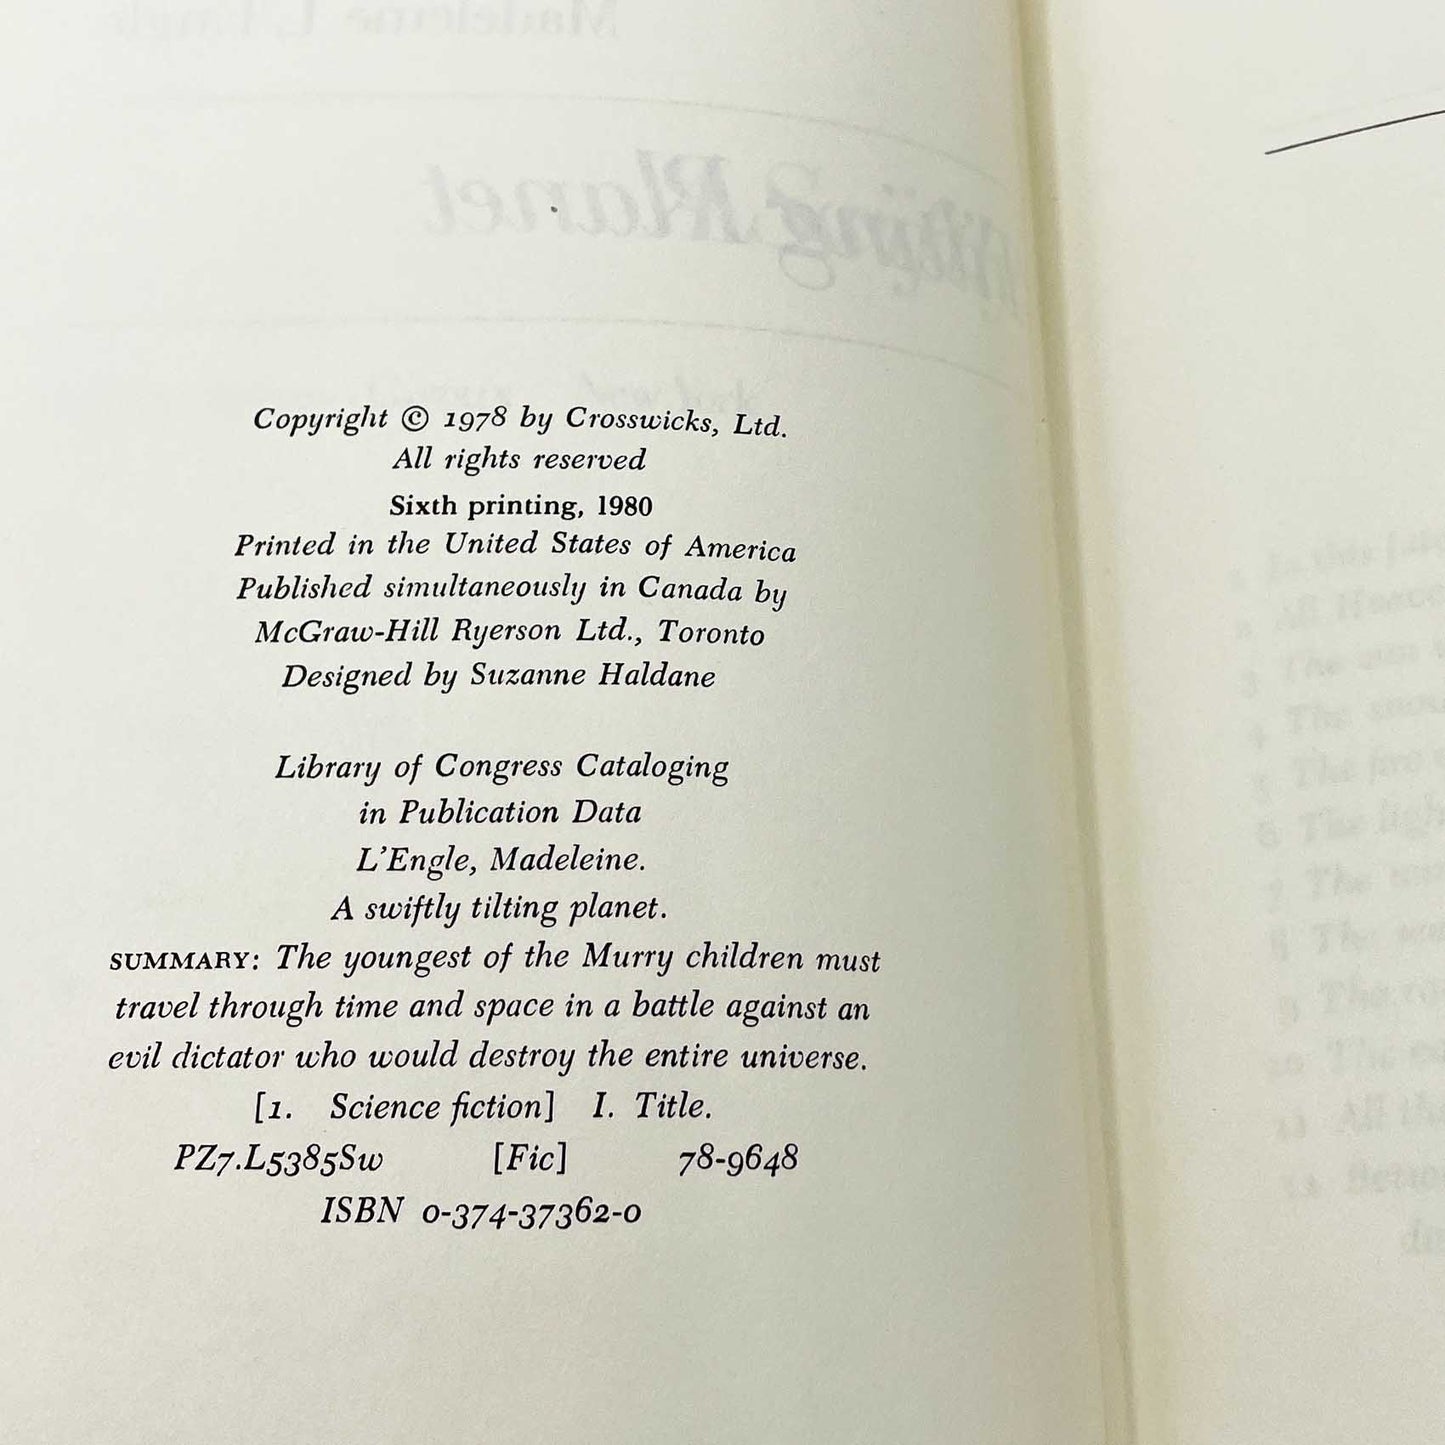 Copyright © 1978 by Crosswicks, Ltd.
All rights reserved
Sixth printing, 1980
Printed in the United States of America
Published simultaneously in Canada by
McGraw-Hill Ryerson Ltd., Toronto
Designed by Suzanne Haldane
Library of Congress Cataloging
in Publication Data
L'Engle, Madeleine.
A swiftly tilting planet.
SUMMARY: The youngest of the Murry children must
travel through time and space in a battle against an
evil dictator who would destroy the entire universe.
[1. Science fiction] I. Title.
PZ7.L5385Sw [Fic] 78-9648
ISBN 0-374-37362-0